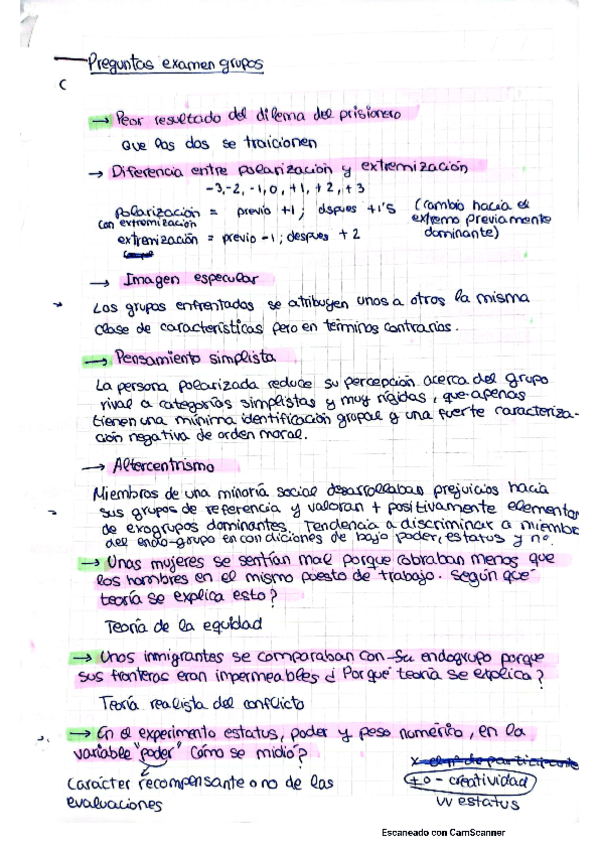 Preguntas examen grupos
C
→ Peor resultado del dilema del prisionero
Que los dos se traicionen
→ Diferencia entre polarización y extremización
-3,-2, -1, 0, +1, +2, +3
polarización = previo +1; dspues +1'5 (cambio hacia el
con extremización extremo previamente
extremización = previo -1; despues +2 dominante)
→ Imagen especular
Los grupos enfrentados se atribuyen unos a otros la misma
clase de características pero en términos contrarios.
→ Pensamiento simplista
La persona polarizada reduce su percepción acerca del grupo
rival a categorías simplistas y muy rígidas, que apenas
tienen una mínima identificación grupal y una fuerte caracteriza-
ción negativa de orden moral.
→ Altercentrismo
Miembros de una minoría social desarrollaban prejuicios hacia
sus grupos de referencia y valoran + positivamente elementos
de exogrupos dominantes. Tendencia a discriminar a miembr
del endo-grupo en condiciones de bajo poder, estatus y no.
→ Unas mujeres se sentían mal porque cobraban menos que
los hombres en el mismo puesto de trabajo. Según qué
teoría se explica esto?
Teoría de la equidad
→ Unos inmigrantes se comparaban con su endogrupo porque
sus fronteras eran impermeables ¿Por qué teoría se explica?
Teoría realista del conflicto
→ En el experimento estatus, poder y peso numérico, en la
variable "poder" Cómo se midió?
x el nº de participante
Carácter recompensante o no de las
evaluaciones
+ o - creatividad
VV estatus
Escaneado con CamScanner